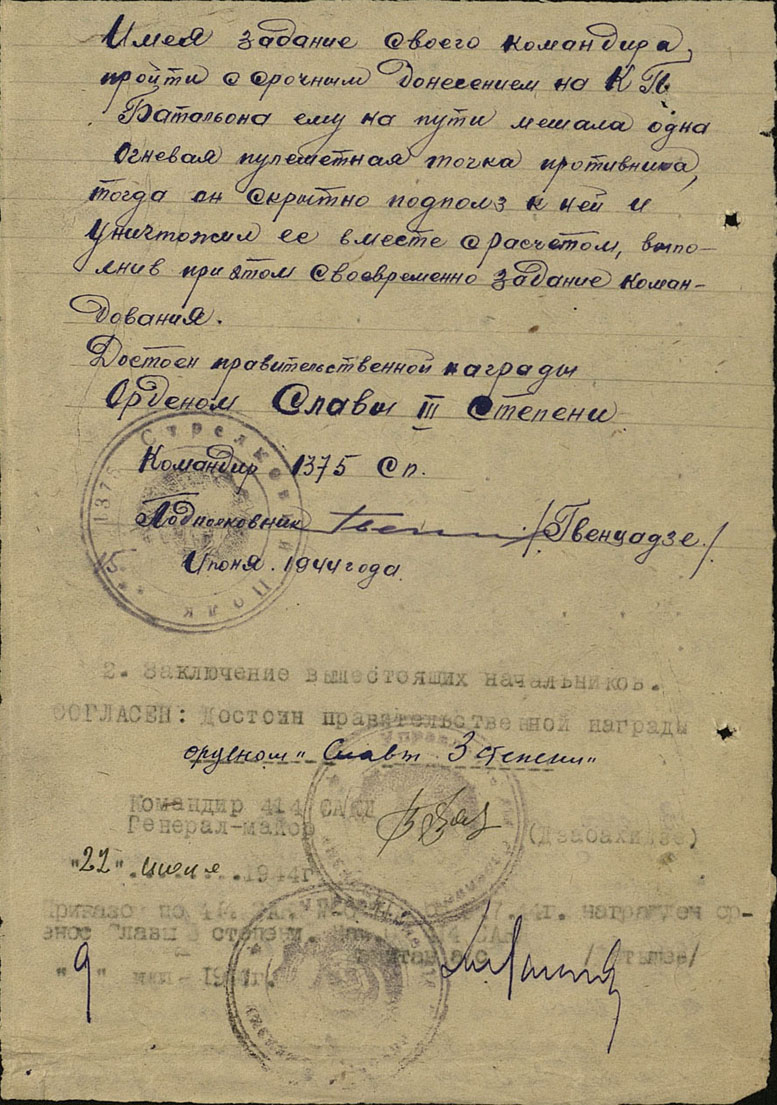 Имея задание своего командира,
пройти с срочным донесением на КП
Батальона ему на пути мешала одна
Огневая пулеметная точка противника,
тогда он скрытно подполз к ней и
уничтожил ее вместе с расчетом, выпо-
лнив при этом своевременно задание коман-
дования.
Достоен правительственной награды
Орденом Славы III Степени
Командир 1375 Сп.
Подполковник /Гвенцадзе/
Июня 1944 года
Стрелковый Полк 1375
2. Заключение вышестоящих начальников.
СОГЛАСЕН: Достоин правительственной награды
орденом „Славы 3 степени"
Командир 414 САКД
Генерал-майор (Дзабахидзе)
"22" июня 1944г
награжден ор-
Славы 3 степени.
"9" 1944г.